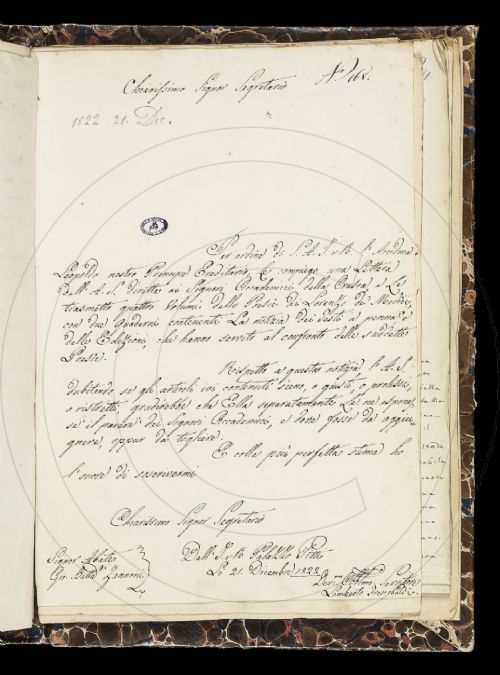 Chiarissimo Signor Segretario
N.º 168.
1822. 21. Dic.
Per ordine di S. A. I. e R. l'Arciduca
Leopoldo nostro Principe Ereditario, Le compiego una Lettera
dell'A. S. diretta ai Signori Accademici della Crusca, e Le
trasmetto quattro Volumi delle Poesie di Lorenzo de Medici,
con due Quaderni contenenti La notizia dei Testi a penna e
delle Edizioni, che hanno servito al confronto delle suddette
Poesie.
Rispetto a questa notizia S. A. I.
dubitando se gli articoli ivi contenuti sieno, o giusti, o prolissi,
o ristretti, gradirebbe che Ella separatamente Le ne esponesse
se il parere dei Signori Accademici, e dove fosse da aggiu-
gnere, oppur da togliere.
E colla più perfetta stima ho
l'onore di sottoscrivermi
Chiarissimo Signor Segretario
Signor Abate
Gio. Batta Zannoni
Dall' I. e R. Palazzo Pitti
Li 21. Dicembre 1822
Dev.mo Servitore
Lamberto Frescobaldi